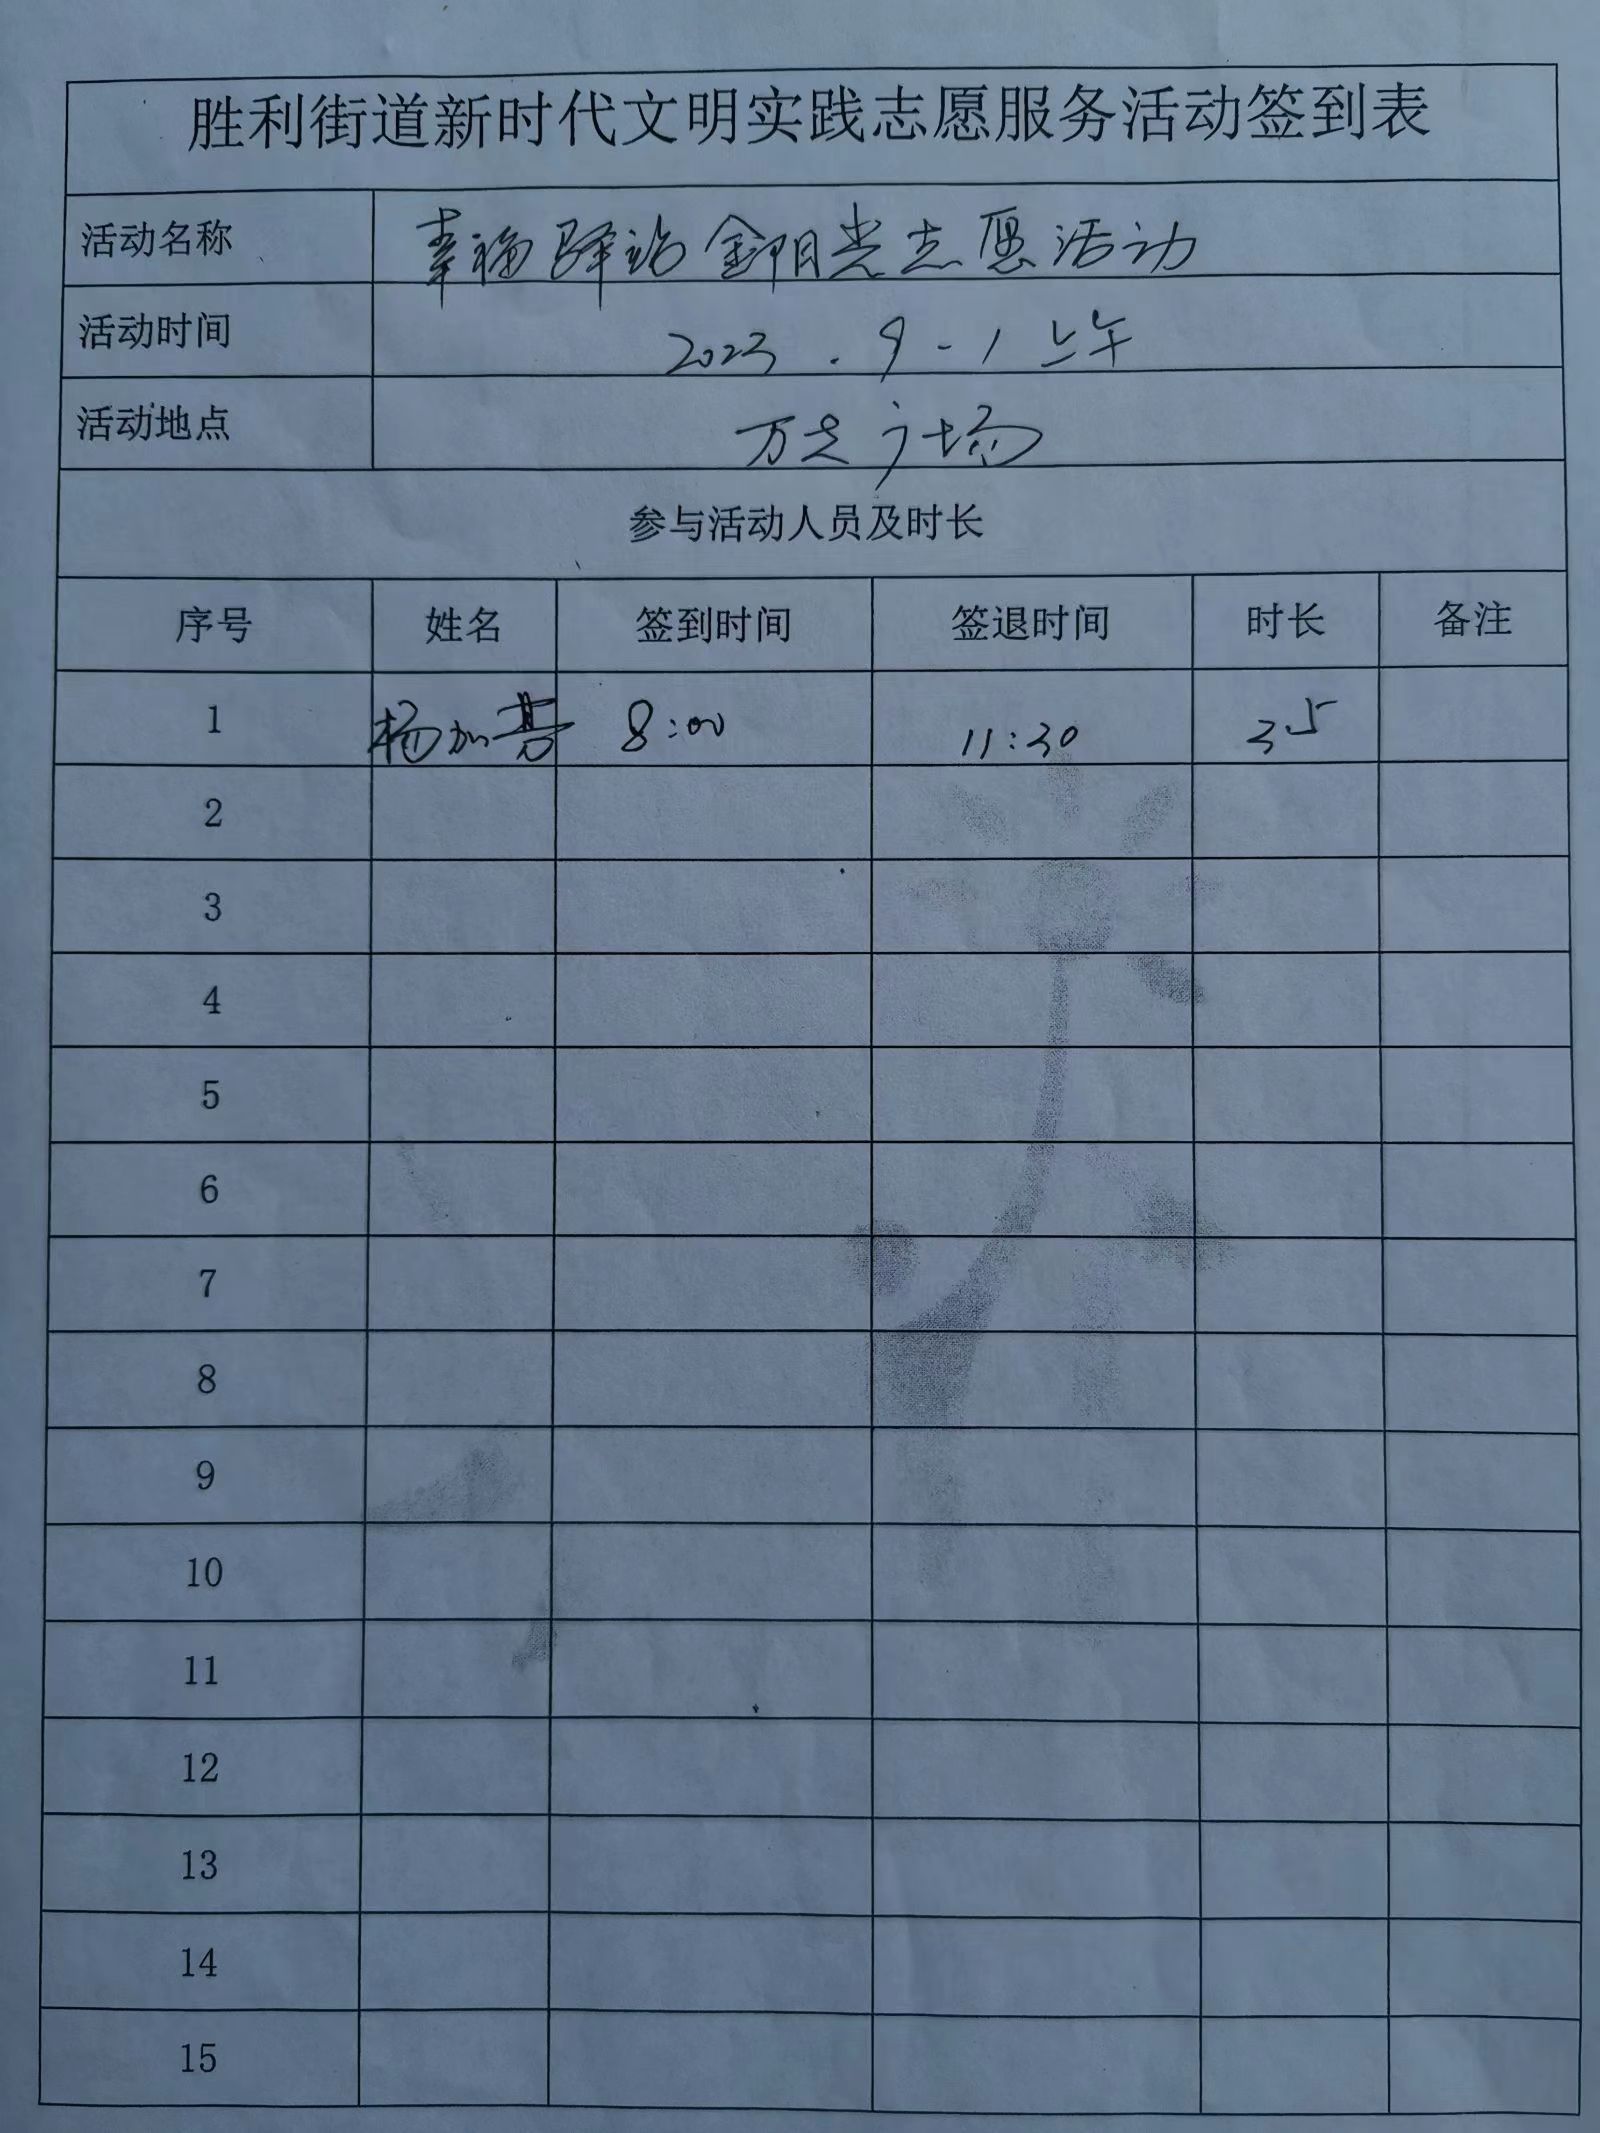 胜利街道新时代文明实践志愿服务活动签到表
活动名称 幸福驿站金阳光志愿活动
活动时间 2023.9-1上午
活动地点 万达广场
参与活动人员及时长
序号 姓名 签到时间 签退时间 时长 备注
1 杨加 8:00 11:30 3.5
2
3
4
5
6
7
8
9
10
11
12
13
14
15